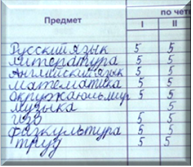 Предмет по чет
I II
Русский язык 5 5
литература 5 5
Английский язык 5 5
математика 5 5
окружающ мир 5 5
музыка 5
изо 5 5
физкультура 5 5
труд 5 5